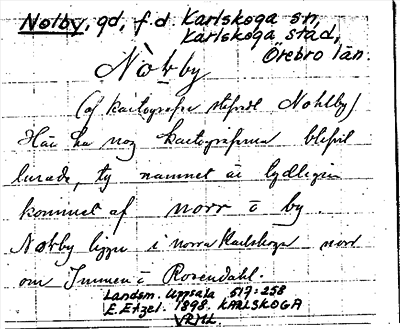 Nolby, gd, f.d. Karlskoga sn,
Karlskoga stad,
Örebro län.
Nòrby
(af kartografen stafvadt Nohlby)
Här ha nog kartograferna blifvit
lurade, ty namnet är tydligen
kommet af norr o by.
Norby ligger i norra Karlskoga norr
om Immen o Rosendahl.
Landsm. Uppsala 517:258
E. Etzel. 1898. KARLSKOGA